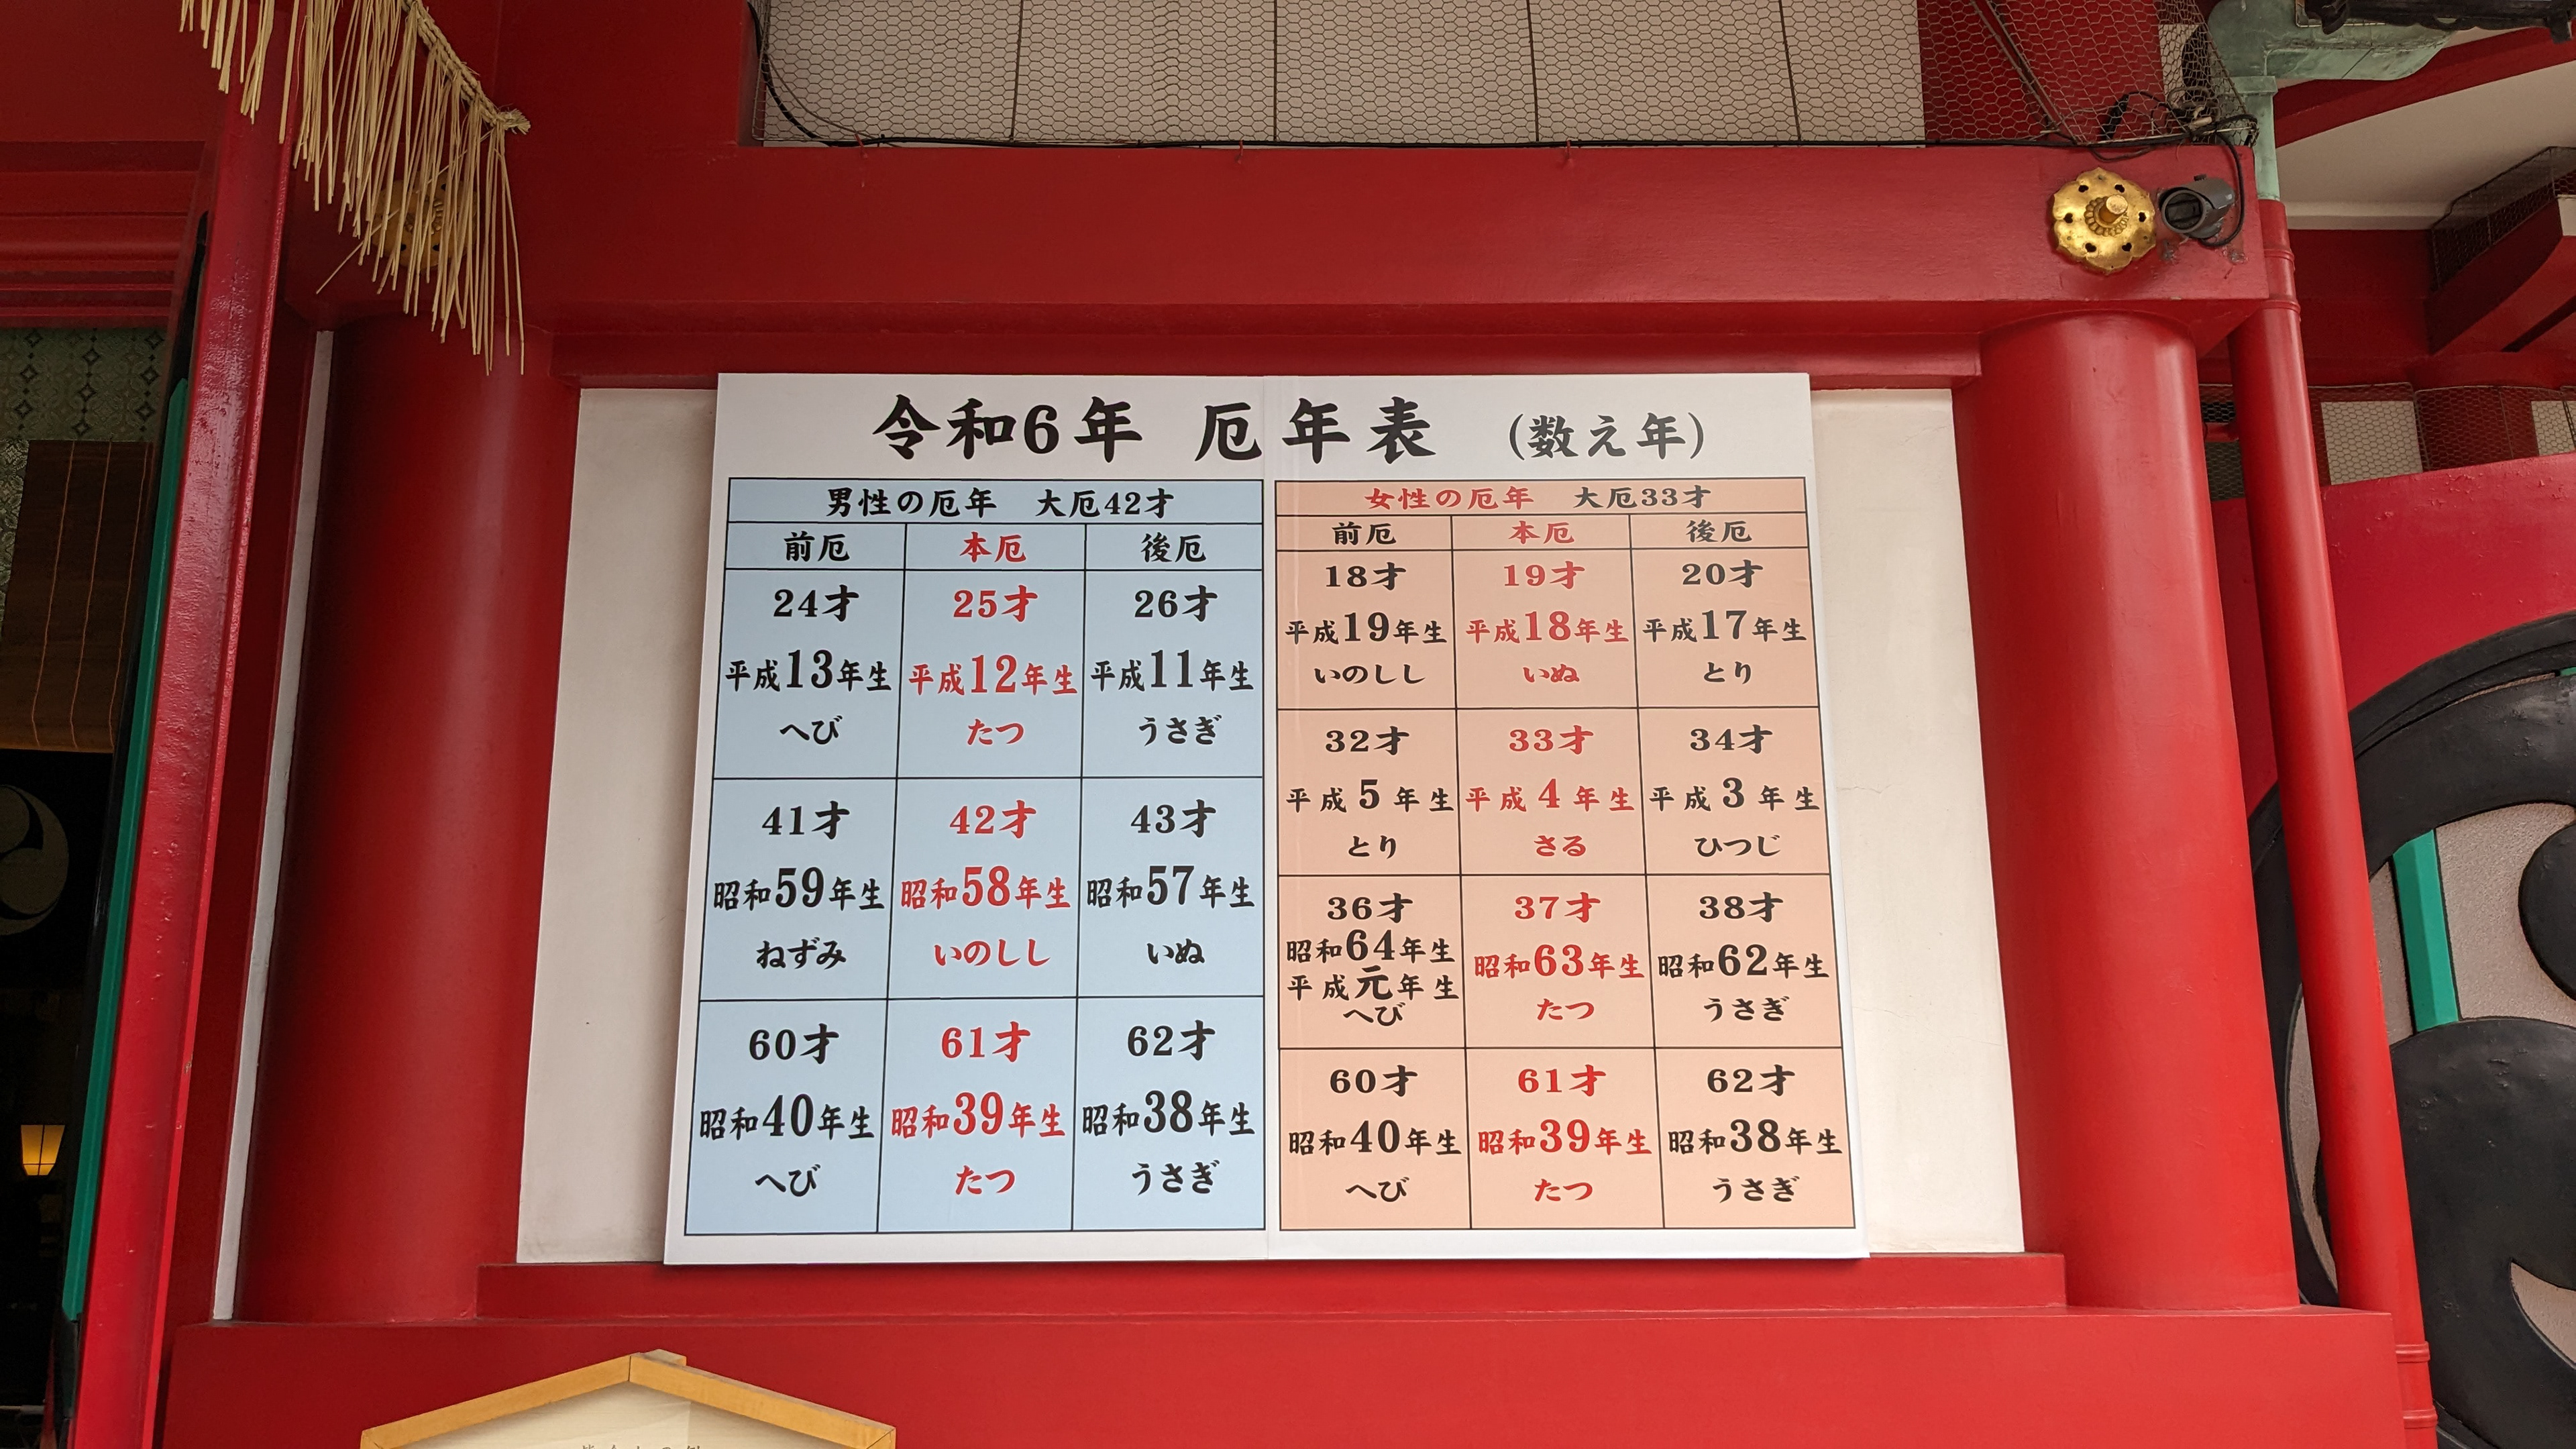 令和6年 厄年表 (数え年)
男性の厄年 大厄42才
前厄 本厄 後厄
24才 25才 26才
平成13年生 平成12年生 平成11年生
へび たつ うさぎ
41才 42才 43才
昭和59年生 昭和58年生 昭和57年生
ねずみ いのしし いぬ
60才 61才 62才
昭和40年生 昭和39年生 昭和38年生
へび たつ うさぎ
女性の厄年 大厄33才
前厄 本厄 後厄
18才 19才 20才
平成19年生 平成18年生 平成17年生
いのしし いぬ とり
32才 33才 34才
平成5年生 平成4年生 平成3年生
とり さる ひつじ
36才 37才 38才
昭和64年生 昭和63年生 昭和62年生
平成元年生
へび たつ うさぎ
60才 61才 62才
昭和40年生 昭和39年生 昭和38年生
へび たつ うさぎ